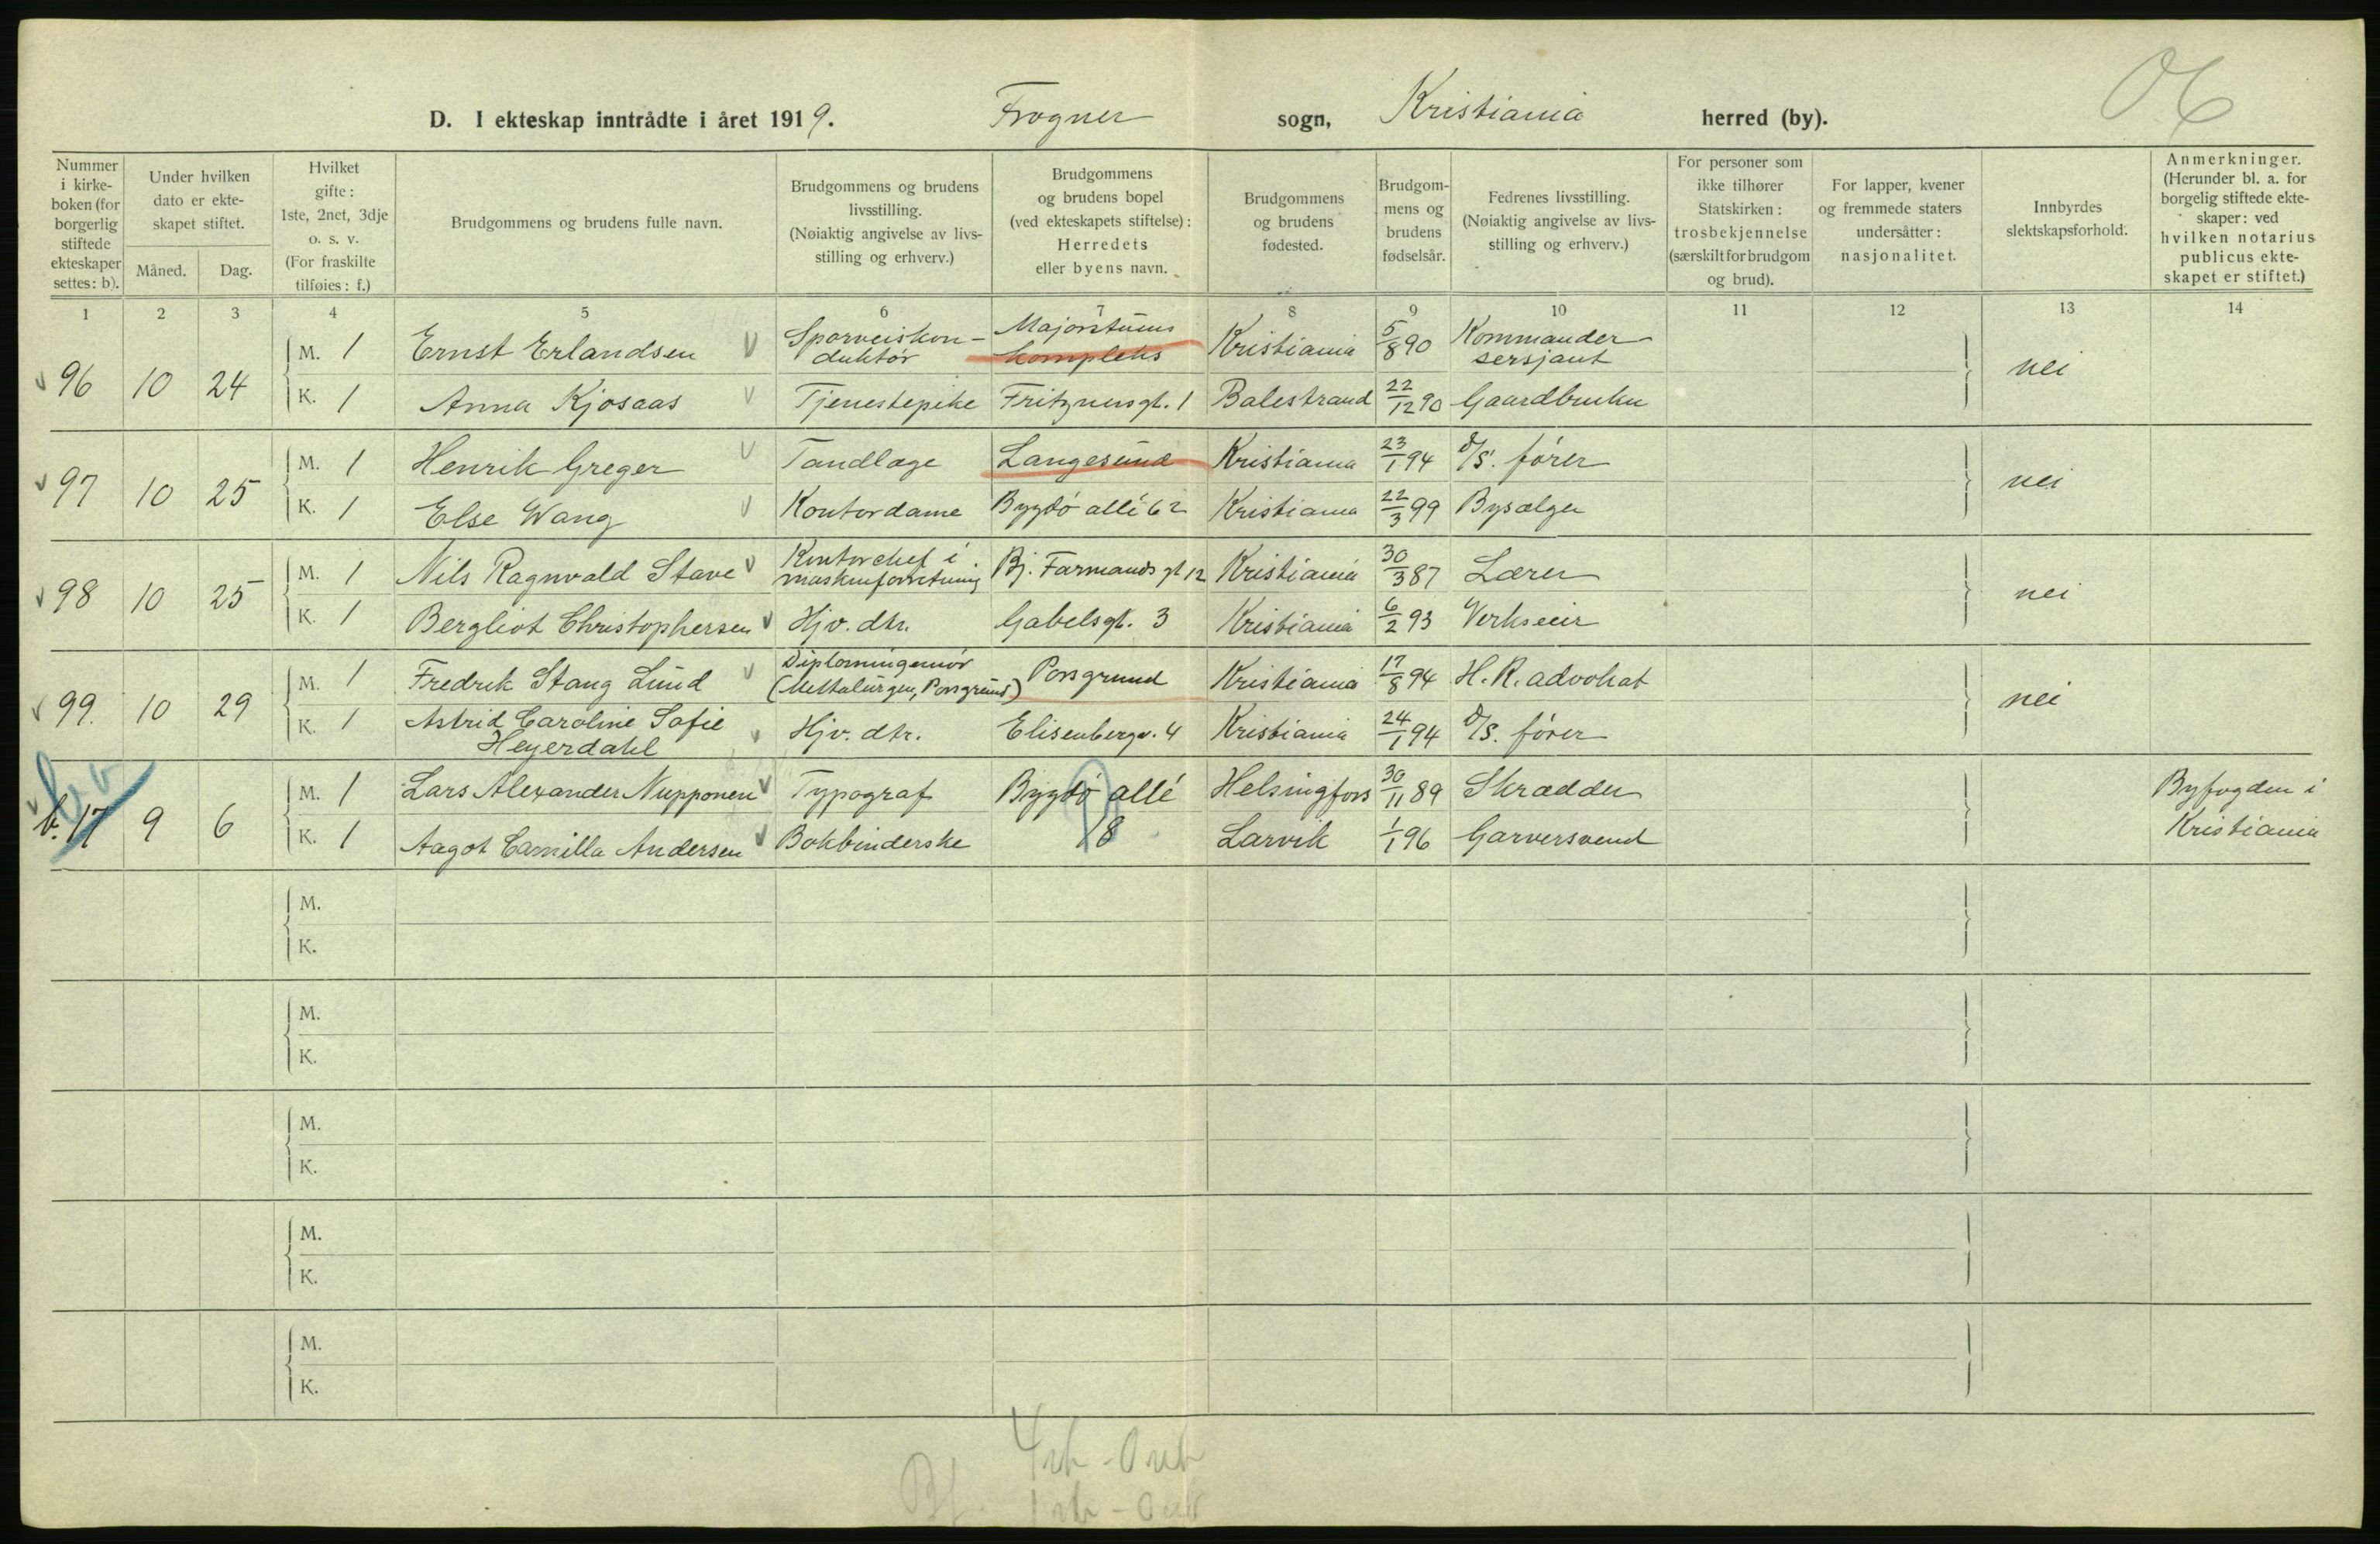 D. I ekteskap inntrådte i året 1919. Frogner sogn, Kristiania herred (by).
Nummer i kirkeboken (for borgerlig stiftede ekteskaper settes: b).
Under hvilken dato er ekteskapet stiftet.
Måned. Dag.
Hvilket gifte: 1ste, 2net, 3dje o. s. v. (For fraskilte tilføies: f.)
Brudgommens og brudens fulle navn.
Brudgommens og brudens livsstilling. (Nøiaktig angivelse av livsstilling og erhverv.)
Brudgommens og brudens bopel (ved ekteskapets stiftelse): Herredets eller byens navn.
Brudgommens og brudens fødested.
Brudgommens og brudens fødselsår.
Fedrenes livsstilling. (Nøiaktig angivelse av livsstilling og erhverv.)
For personer som ikke tilhører Statskirken: trosbekjennelse (særskilt for brudgom og brud).
For lapper, kvener og fremmede staters undersåtter: nasjonalitet.
Innbyrdes slektskapsforhold.
Anmerkninger. (Herunder bl. a. for borgelig stiftede ekteskaper: ved hvilken notarius publicus ekteskapet er stiftet.)
1 2 3 4 5 6 7 8 9 10 11 12 13 14
96 10 24 M. 1 Ernst Erlandsen Sporveiskonduktør Majorstuens kompleks Kristiania 5/8 90 Kommandersersjant nei
K. 1 Anna Kjosaas Tjenestepike Fritznersgt. 1 Balestrand 22/12 90 Gaardbruker
97 10 25 M. 1 Henrik Greger Tandlæge Langesund Kristiania 23/1 94 d/s. fører nei
K. 1 Else Wang Kontordame Bygdö allé 62 Kristiania 22/3 99 Bysælger
98 10 25 M. 1 Nils Ragnvald Stave Kontorchef i maskinforretning Bj. Farmands gt 12 Kristiania 30/3 87 Lærer nei
K. 1 Bergliot Christophersen Hjv. dtr. Gabelsgt. 3 Kristiania 6/2 93 Verkseier
99. 10 29 M. 1 Fredrik Stang Lund Diplomingeniør (Mettalurgen, Porsgrund) Porsgrund Kristiania 17/8 94 H. R. advokat nei
K. 1 Astrid Caroline Sofie Heyerdahl Hjv. dtr. Elisenbergv. 4 Kristiania 24/1 94 d/s. fører
b. 17 9 6 M. 1 Lars Alexander Nupponen Typograf Bygdö allé 18 Helsingfors 30/11 89 Skrædder Byfogden i Kristiania
K. 1 Aagot Camilla Andersen Bokbinderske Larvik 1/1 96 Garversvend
M.
K.
M.
K.
M.
K.
M.
K.
M.
K.